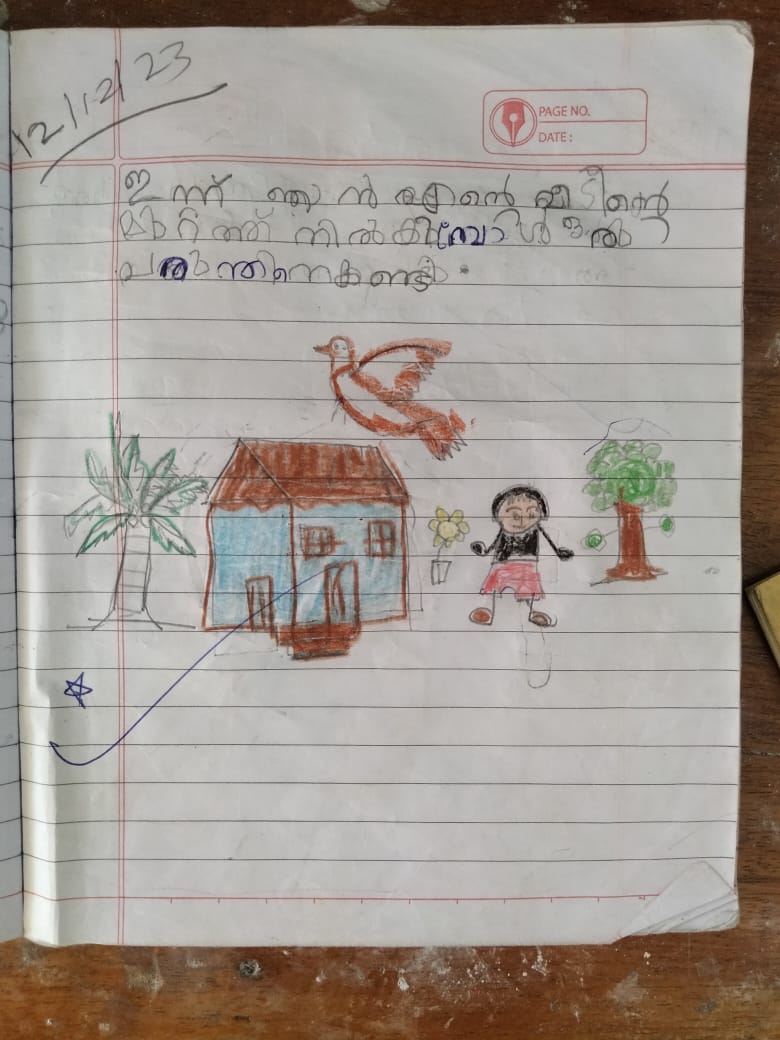 12/12/23
PAGE NO.
DATE:
ഇന്ന് ഞാൻ എന്റെ വീടിന്റെ
മുറ്റത്ത് നിൽക്കുമ്പോൾ ഒരു
പരുന്തിനെ കണ്ടു.